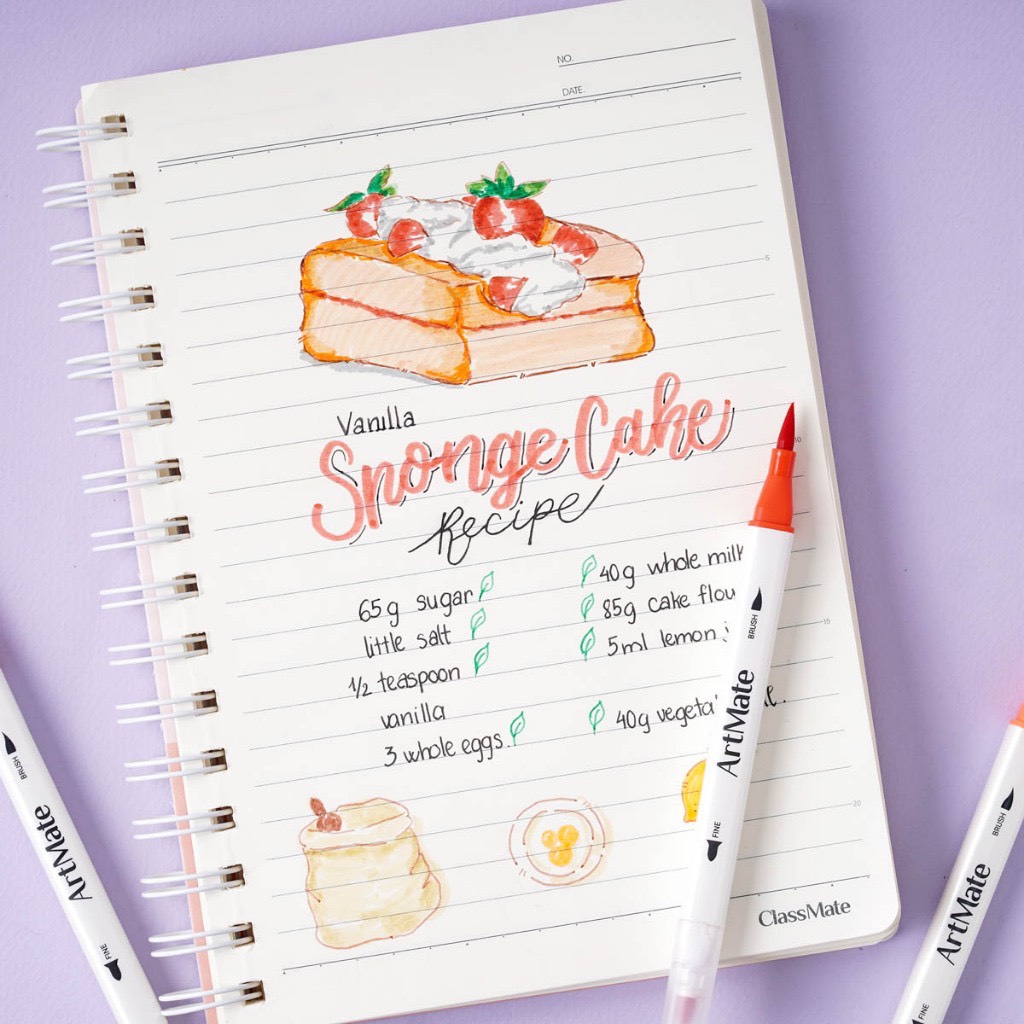 NO.
DATE.
Vanilla
Sponge Cake
Recipe
65g sugar
little salt
1/2 teaspoon
vanilla
3 whole eggs.
40g whole milk
85g cake flou
5ml lemon
40g vegeta
5
10
15
20
ClassMate
BRUSH
ArtMate
FINE
BRUSH
ArtMate
FINE
BRUSH
ArtMate
FINE